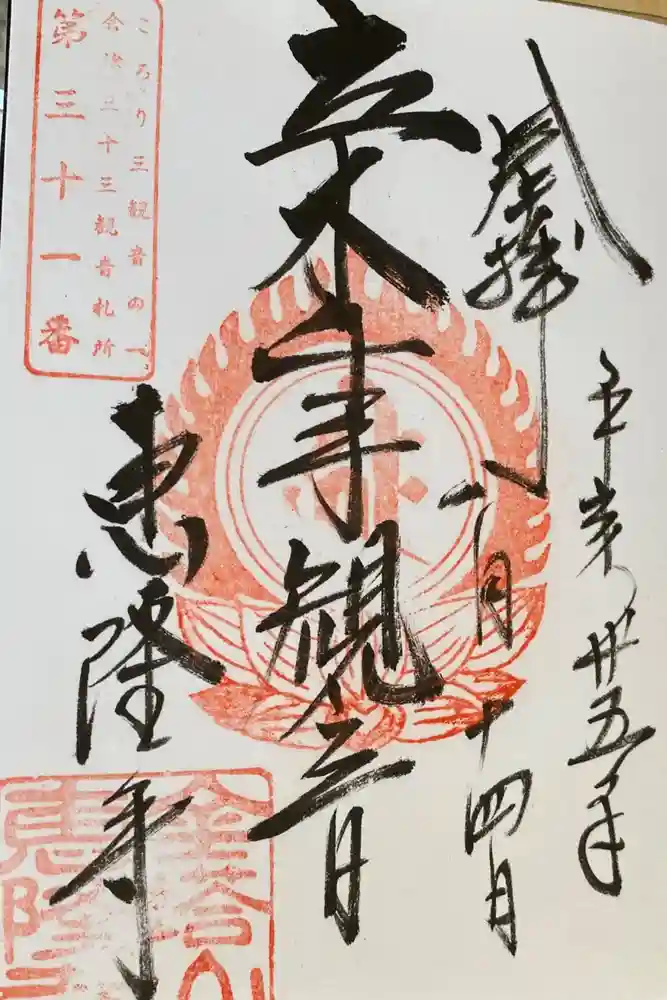 奉拝
平成卅五年
八月
十四日
立木千手観音
恵隆寺
ころり三観音の一
会津三十三観音札所
第三十一番